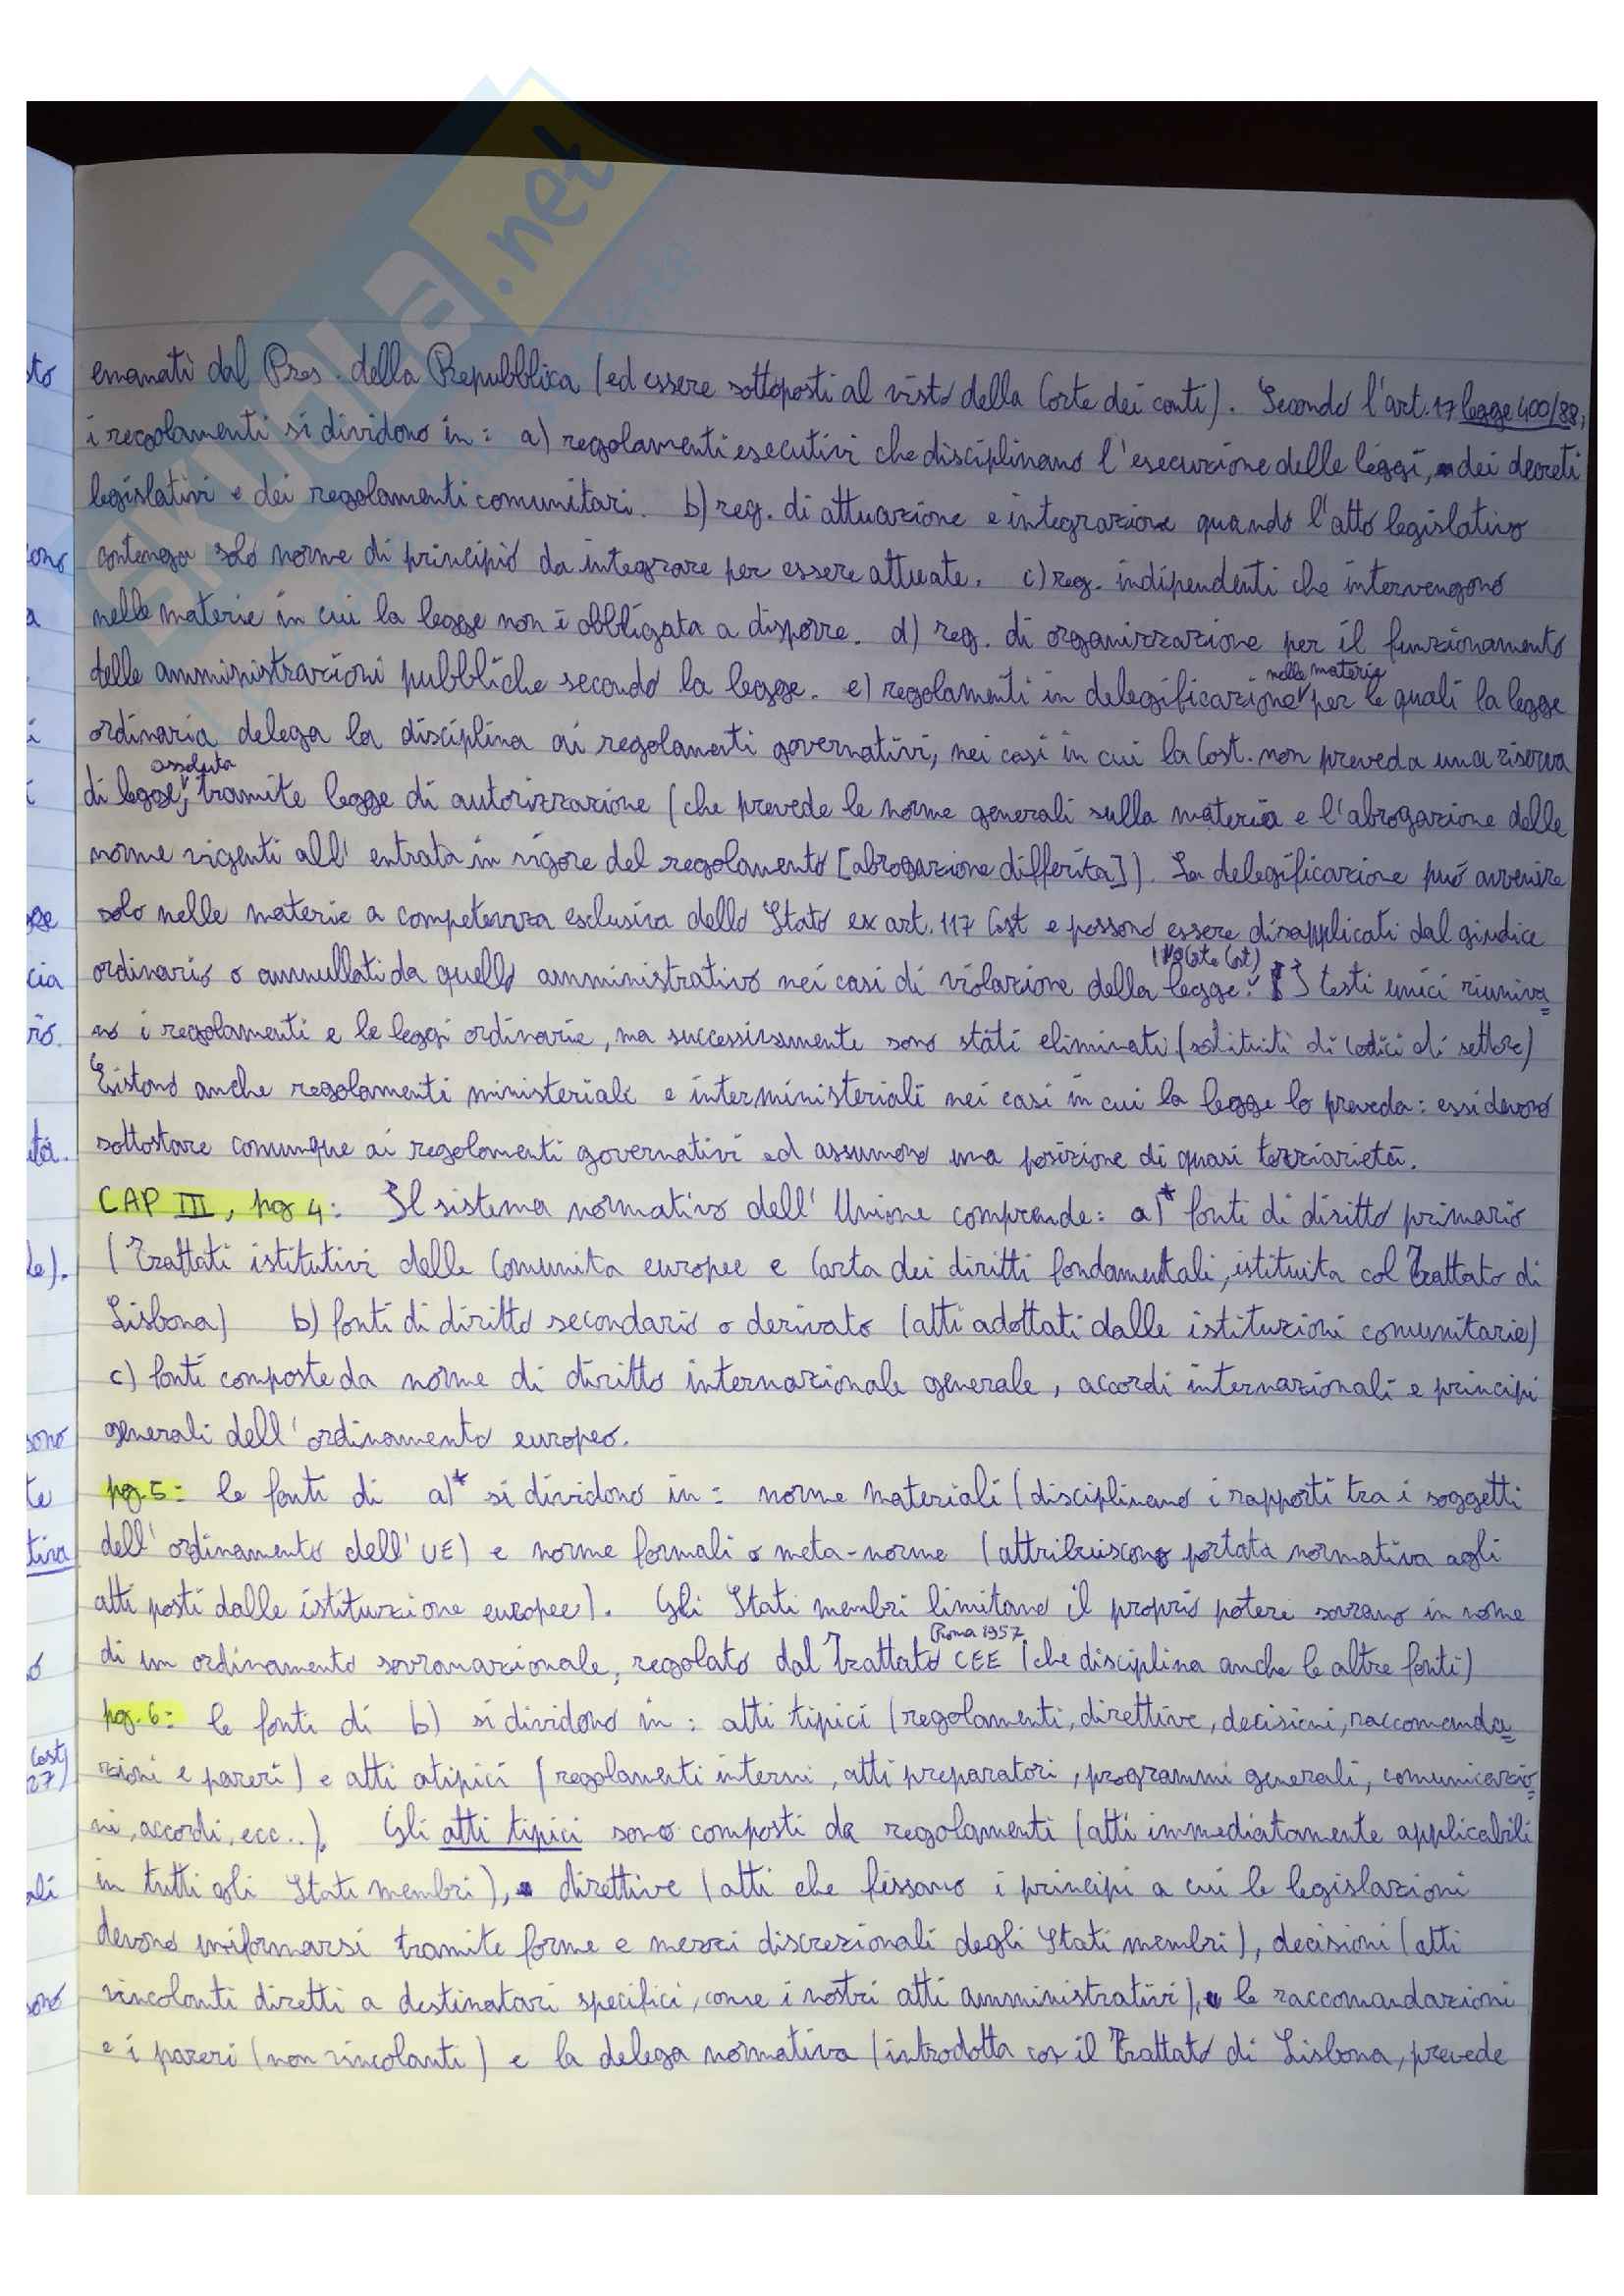 SKUOLA.net
emanati dal Pres. della Repubblica (ed essere sottoposti al visto della Corte dei conti). Secondo l'art. 17 legge 400/88,
i regolamenti si dividono in: a) regolamenti esecutivi che disciplinano l'esecuzione delle leggi, dei decreti
legislativi e dei regolamenti comunitari. b) reg. di attuazione e integrazione quando l'atto legislativo
contenga solo norme di principio da integrare per essere attuate. c) reg. indipendenti che intervengono
nelle materie in cui la legge non è obbligata a disporre. d) reg. di organizzazione per il funzionamento
delle amministrazioni pubbliche secondo la legge. e) regolamenti in delegificazione nelle materie per le quali la legge
ordinaria delega la disciplina ai regolamenti governativi, nei casi in cui la Cost. non preveda una riserva
di legge assoluta, tramite legge di autorizzazione (che prevede le norme generali sulla materia e l'abrogazione delle
norme vigenti all' entrata in vigore del regolamento [abrogazione differita]). La delegificazione può avvenire
solo nelle materie a competenza esclusiva dello Stato ex art. 117 Cost e possono essere disapplicati dal giudice
ordinario o annullati da quello amministrativo nei casi di violazione della legge. I testi unici riuniva
no i regolamenti e le leggi ordinarie, ma successivamente sono stati eliminati (sostituiti di codici di settore)
Esistono anche regolamenti ministeriali e interministeriali nei casi in cui la legge lo preveda: essi devono
sottostare comunque ai regolamenti governativi ed assumono una posizione di quasi terziarietà.
CAP III, pg 4: Il sistema normativo dell' Unione comprende: a)* fonti di diritto primario
(Trattati istitutivi delle Comunità europee e Carta dei diritti fondamentali, istituita col Trattato di
Lisbona) b) fonti di diritto secondario o derivato (atti adottati dalle istituzioni comunitarie)
c) fonti composte da norme di diritto internazionale generale, accordi internazionali e principi
generali dell' ordinamento europeo.
pg. 5: le fonti di a)* si dividono in: norme materiali (disciplinano i rapporti tra i soggetti
dell' ordinamento dell' UE) e norme formali o meta-norme (attribuiscono portata normativa agli
atti posti dalle istituzione europee). Gli Stati membri limitano il proprio potere sovrano in nome
di un ordinamento sovranazionale, regolato dal Trattato CEE Roma 1957 (che disciplina anche le altre fonti)
pg. 6: le fonti di b) si dividono in: atti tipici (regolamenti, direttive, decisioni, raccomanda
zioni e pareri) e atti atipici (regolamenti interni, atti preparatori, programmi generali, comunicazio
ni, accordi, ecc..). Gli atti tipici sono composti da regolamenti (atti immediatamente applicabili
in tutti gli Stati membri), direttive (atti che fissano i principi a cui le legislazioni
devono uniformarsi tramite forme e mezzi discrezionali degli Stati membri), decisioni (atti
vincolanti diretti a destinatari specifici, come i nostri atti amministrativi), le raccomandazioni
e i pareri (non vincolanti) e la delega normativa (introdotta con il Trattato di Lisbona, prevede